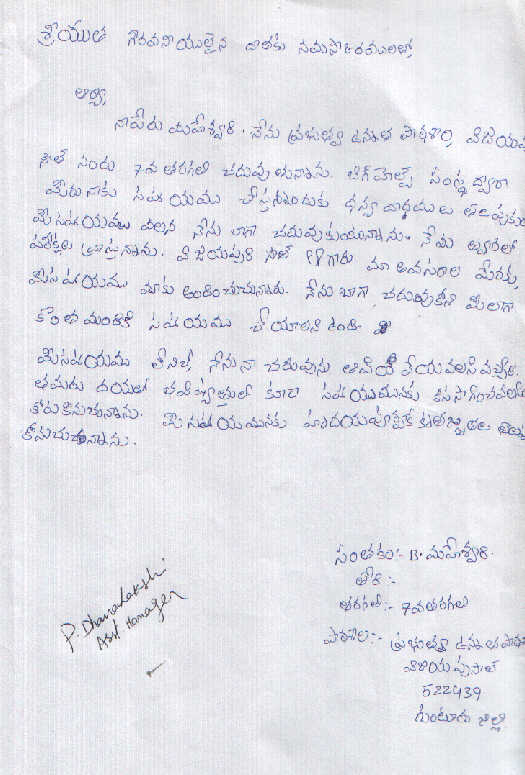 శ్రీయుత గౌరవనీయులైన దాతకు నమస్కారములతో
ఆర్యా
నాపేరు మహేశ్వరి. నేను ప్రభుత్వ ఉన్నత పాఠశాల విజయపు
నందు 7వ తరగతి చదువుతున్నాను. బిగ్ హెల్ప్ సంస్థ ద్వారా
మీరు నాకు సహాయము చేస్తునందుకు ధన్యవాదములు తెలుపుకుం
మీ సహాయము వలన నేను బాగా చదువుకుంటున్నాను. నేను త్వరలో
పరీక్షలు వ్రాస్తున్నాను. విజయపురి సౌత్ గారు మా అవసరాల మేరకు
మీ సహాయము మాకు అందించుచున్నారు. నేను బాగా చదువుకొని మీలాగా
కొంత మందికి సహాయము చేయాలని ఉంది
మీ సహాయము లేనిచో నేను నా చదువును ఆపి వేయవలసి వచ్చేది.
తమరు దయతో భవిష్యత్తులో కూడా సహాయమునకు కొనసాగించవలసి
కోరుకొనుచున్నాను. మీ సహాయమునకు హృదయపూర్వక కృతజ్ఞతలు
కొనుచున్నాను.
సంతకం:- B. మహేశ్వరి.
తేది :-
తరగతి:- 7వ తరగతి
పాఠశాల:- ప్రభుత్వ ఉన్నత పాఠ
522439
గుంటూరు జిల్లా
P. Dhanalakshmi
Asst Manager